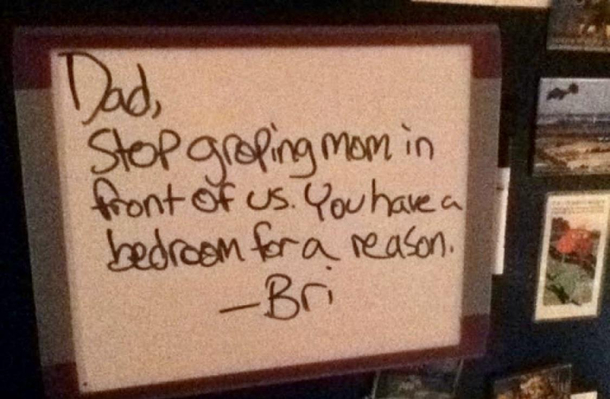 Dad,
Stop groping mom in
front of us. You have a
bedroom for a reason.
—Bri